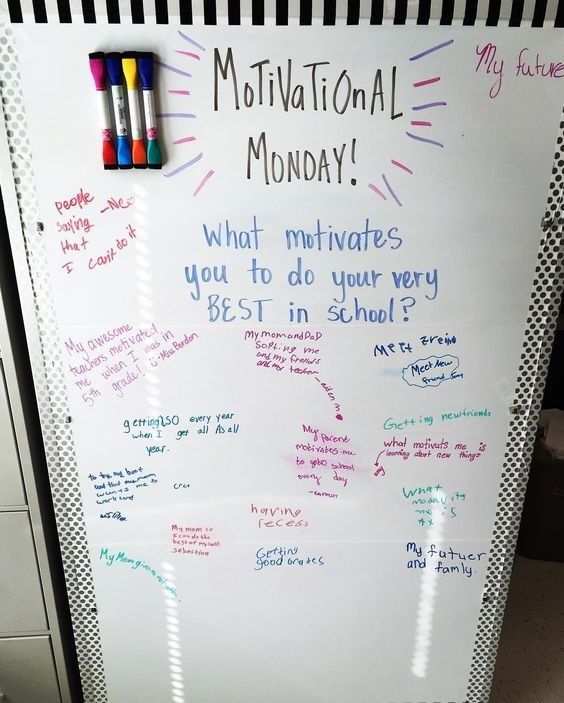 MOTiVaTiOnAL
MONDAY!
My future
people
saying
that
I can't do it
What motivates
you to do your very
BEST in school?
My awesome
teachers motivated
me when I was in
5th grade!
-Miss
My mom and DaD
me
and my friends
and my techer
MeeT
Meet New
friend
getting $50 every year
when I get all As all
year.
My Parent
motivates me
to goto school
every day
-carmen
Getting newfriends
what motivats me is
learning about new things
to try my best
and that
wants me to
work hard
What
My mom so
I can do the
best of my self!
sebastian
having
recess
My Mom
Getting
good Grades
My futuer
and famly.